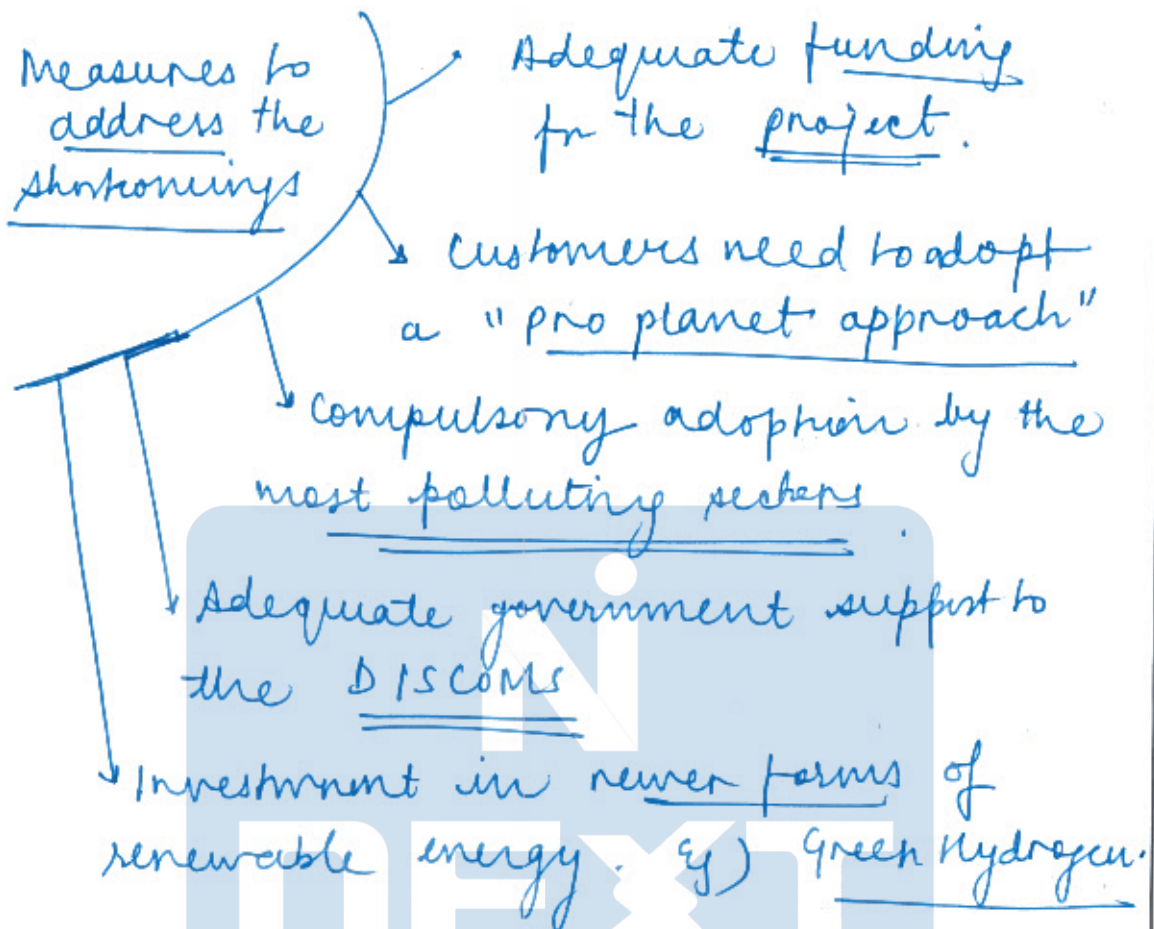 Measures to
address the
shortcomings
Adequate funding
for the project.
Customers need to adopt
a "pro planet approach"
Compulsory adoption by the
most polluting sectors.
Adequate government support to
the DISCOMS
Investment in newer forms of
renewable energy. Eg) Green Hydrogen.
N
NEXT